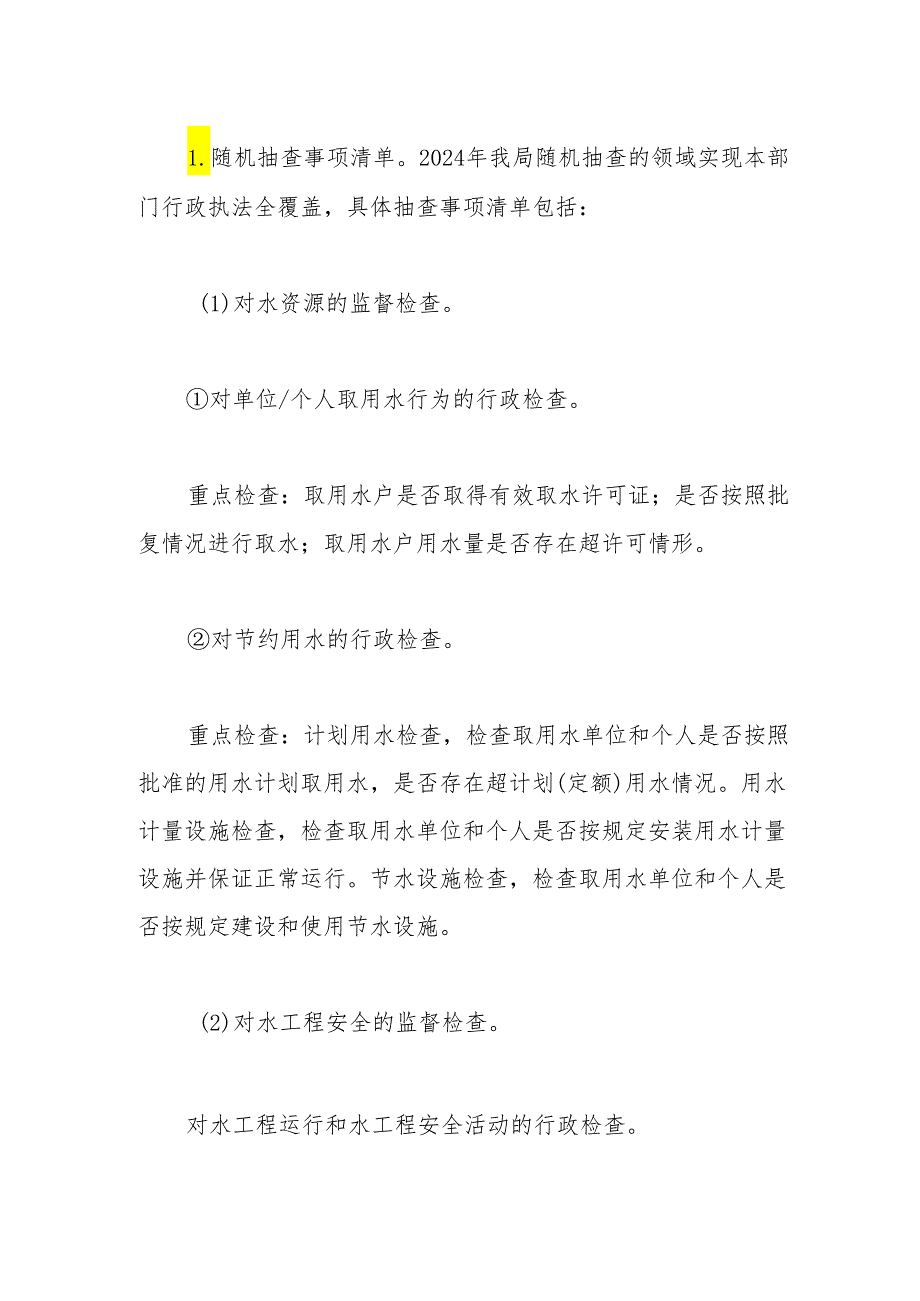 1.随机抽查事项清单。2024年我局随机抽查的领域实现本部
门行政执法全覆盖，具体抽查事项清单包括：
(1)对水资源的监督检查。
①对单位/个人取用水行为的行政检查。
重点检查：取用水户是否取得有效取水许可证；是否按照批
复情况进行取水；取用水户用水量是否存在超许可情形。
②对节约用水的行政检查。
重点检查：计划用水检查，检查取用水单位和个人是否按照
批准的用水计划取用水，是否存在超计划(定额)用水情况。用水
计量设施检查，检查取用水单位和个人是否按规定安装用水计量
设施并保证正常运行。节水设施检查，检查取用水单位和个人是
否按规定建设和使用节水设施。
(2)对水工程安全的监督检查。
对水工程运行和水工程安全活动的行政检查。